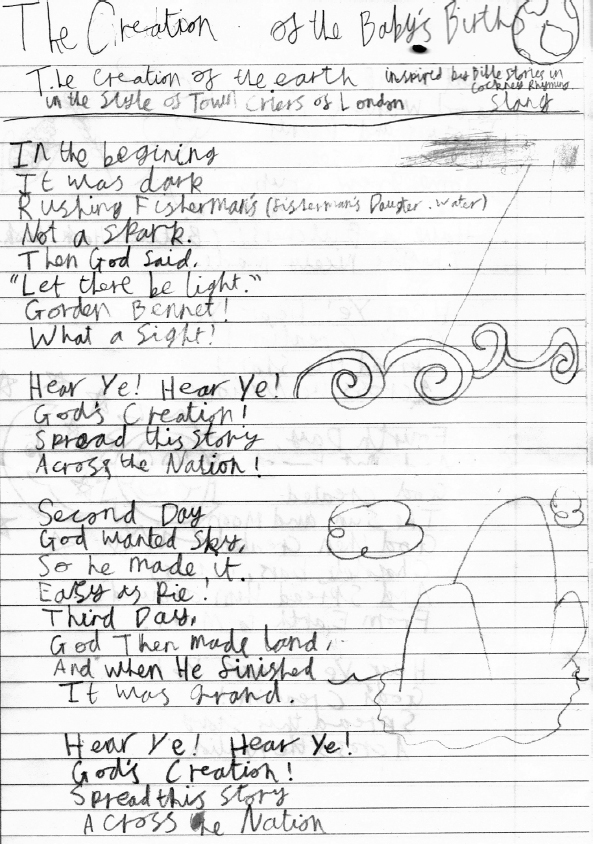 The Creation of the Baby's Birth
The creation of the earth inspired by Bible stories in
Cockney Rhyming
in the Style of Town Criers of London slang
In the begining
It was dark
Rushing Fisherman's (Fisherman's Daugter. water)
Not a spark.
Then God said.
"Let there be light."
Gorden Bennet!
What a Sight!
Hear Ye! Hear Ye!
God's Creation!
Spread this story
Across the Nation!
Second Day
God wanted sky,
So he made it.
Easy as Pie!
Third Day,
God Then made land,
And when He finished
It was grand.
Hear Ye! Hear Ye!
God's Creation!
Spread this story
Across the Nation